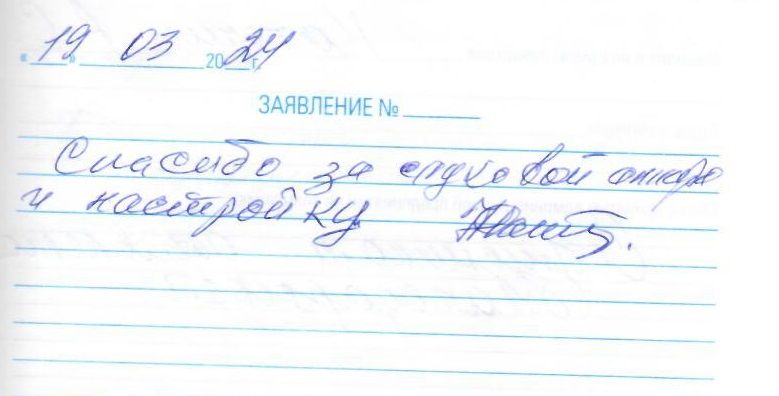 « 19 » 03 2024 г.
ЗАЯВЛЕНИЕ № ______
Спасибо за слуховой аппарат
и настройку